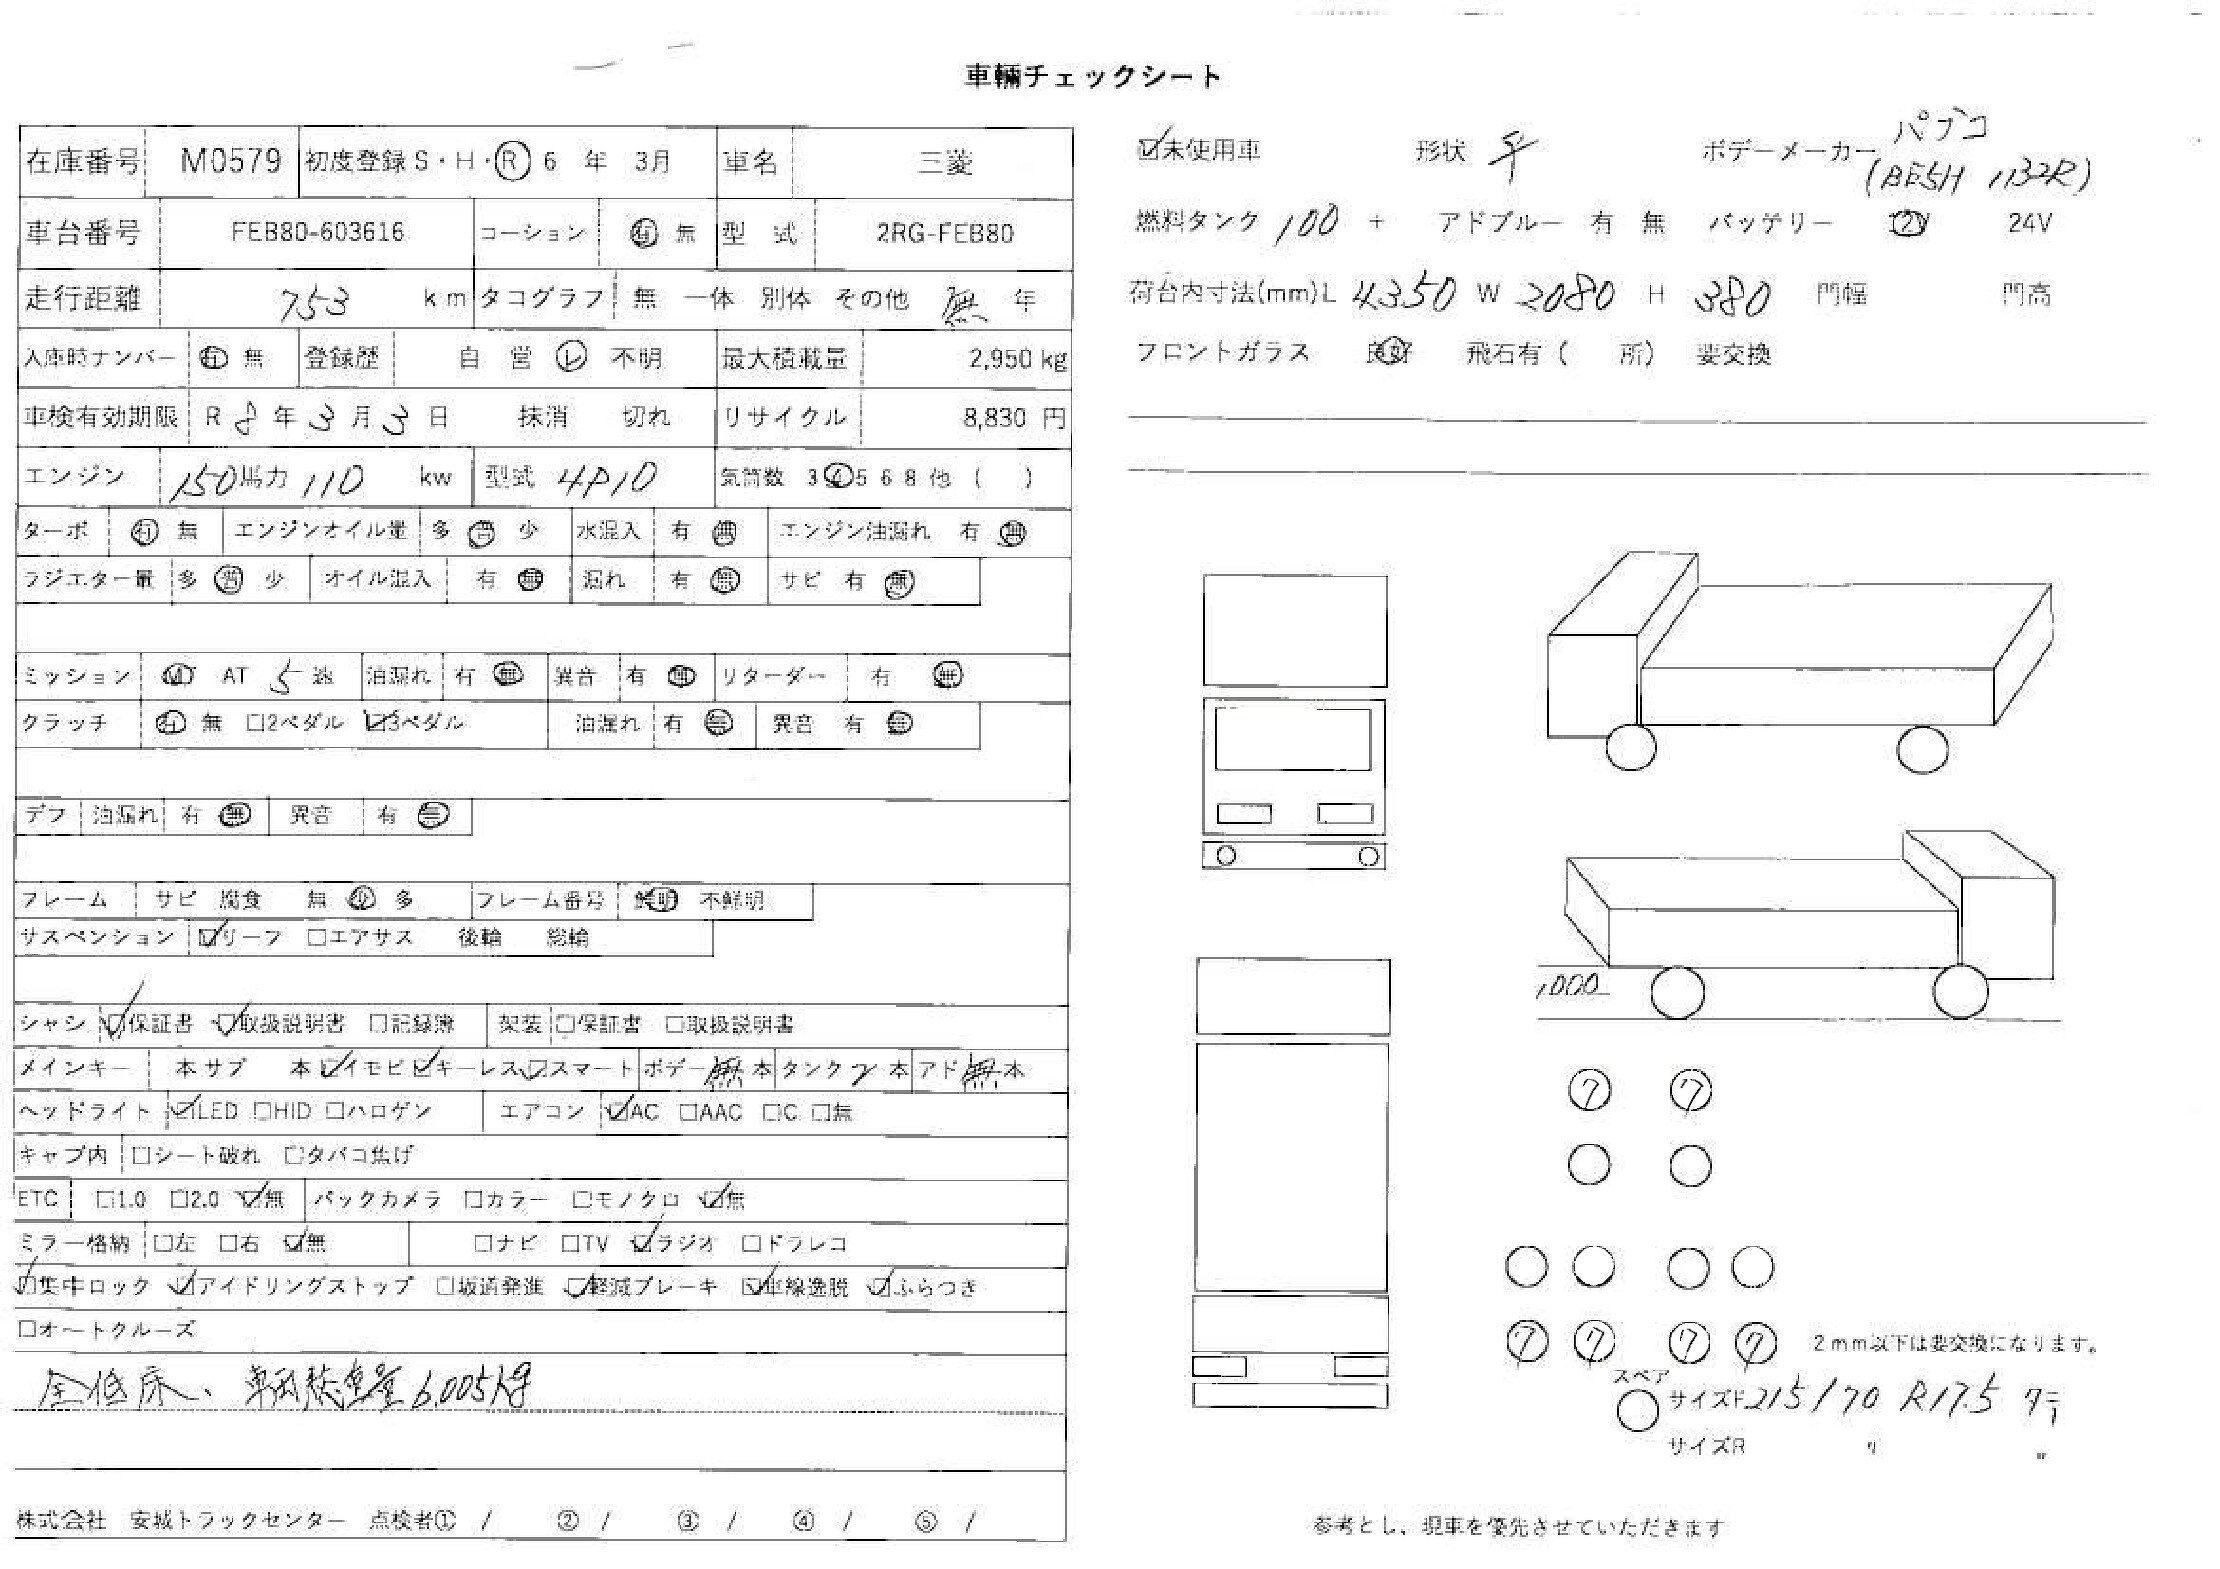 車輛チェックシート
在庫番号 M0579 初度登録 S・H・Ⓡ 6 年 3月 車名 三菱
車台番号 FEB80-603616 コーション 有 無 型 式 2RG-FEB80
走行距離 753 km タコグラフ 無 一体 別体 その他 無 年
入庫時ナンバー 有 無 登録歴 自 営 レ 不明 最大積載量 2,950 kg
車検有効期限 R 8 年 3 月 3 日 抹消 切れ リサイクル 8,830 円
エンジン 150馬力 110 kw 型式 4P10 気筒数 3 ④ 5 6 8 他 ( )
ターボ 有 無 エンジンオイル量 多 適 少 水混入 有 無 エンジン油漏れ 有 無
ラジエター量 多 適 少 オイル混入 有 無 漏れ 有 無 サビ 有 無
ミッション MT AT 5 速 油漏れ 有 無 異音 有 無 リターダー 有 無
クラッチ 有 無 □2ペダル ☑3ペダル 油漏れ 有 無 異音 有 無
デフ 油漏れ 有 無 異音 有 無
フレーム サビ 腐食 無 少 多 フレーム番号 鮮明 不鮮明
サスペンション ☑リーフ □エアサス 後輪 総輪
シャシ ☑保証書 ☑取扱説明書 □記録簿 架装 □保証書 □取扱説明書
メインキー 本 サブ 本 ☑イモビ ☑キーレス ☑スマート ボデー 無 本 タンク 2 本 アド 無 本
ヘッドライト ☑LED □HID □ハロゲン エアコン ☑AC □AAC □C □無
キャブ内 □シート破れ □タバコ焦げ
ETC □1.0 □2.0 ☑無 バックカメラ □カラー □モノクロ ☑無
ミラー格納 □左 □右 ☑無 □ナビ □TV ☑ラジオ □ドラレコ
☑集中ロック ☑アイドリングストップ □坂道発進 ☑軽減ブレーキ ☑車線逸脱 ☑ふらつき
□オートクルーズ
全低床、車両総重量6,005kg
株式会社 安城トラックセンター 点検者① / ② / ③ / ④ / ⑤ /
☑未使用車 形状 平 ボデーメーカー パブコ
(BE5H 1132R)
燃料タンク 100 + アドブルー 有 無 バッテリー 12V 24V
荷台内寸法(mm) L 4350 W 2080 H 380 門幅 門高
フロントガラス 良好 飛石有 ( 所) 要交換
1000
7 7
7 7 7 7 2mm以下は要交換になります。
スペア
サイズF 215/70 R17.5
サイズR 〃 〃
参考とし、現車を優先させていただきます